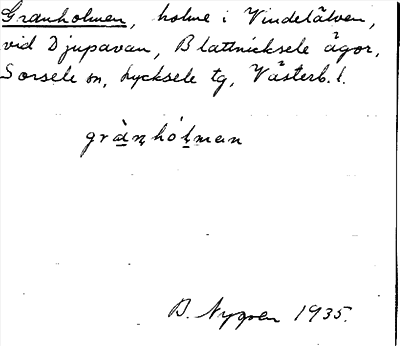 Granholmen, holme i Vindelälven,
vid Djupavan, Blattnicksele ägor,
Sorsele sn, Lycksele tg, Västerb. l.
grànhólmen
B. Nygren 1935.